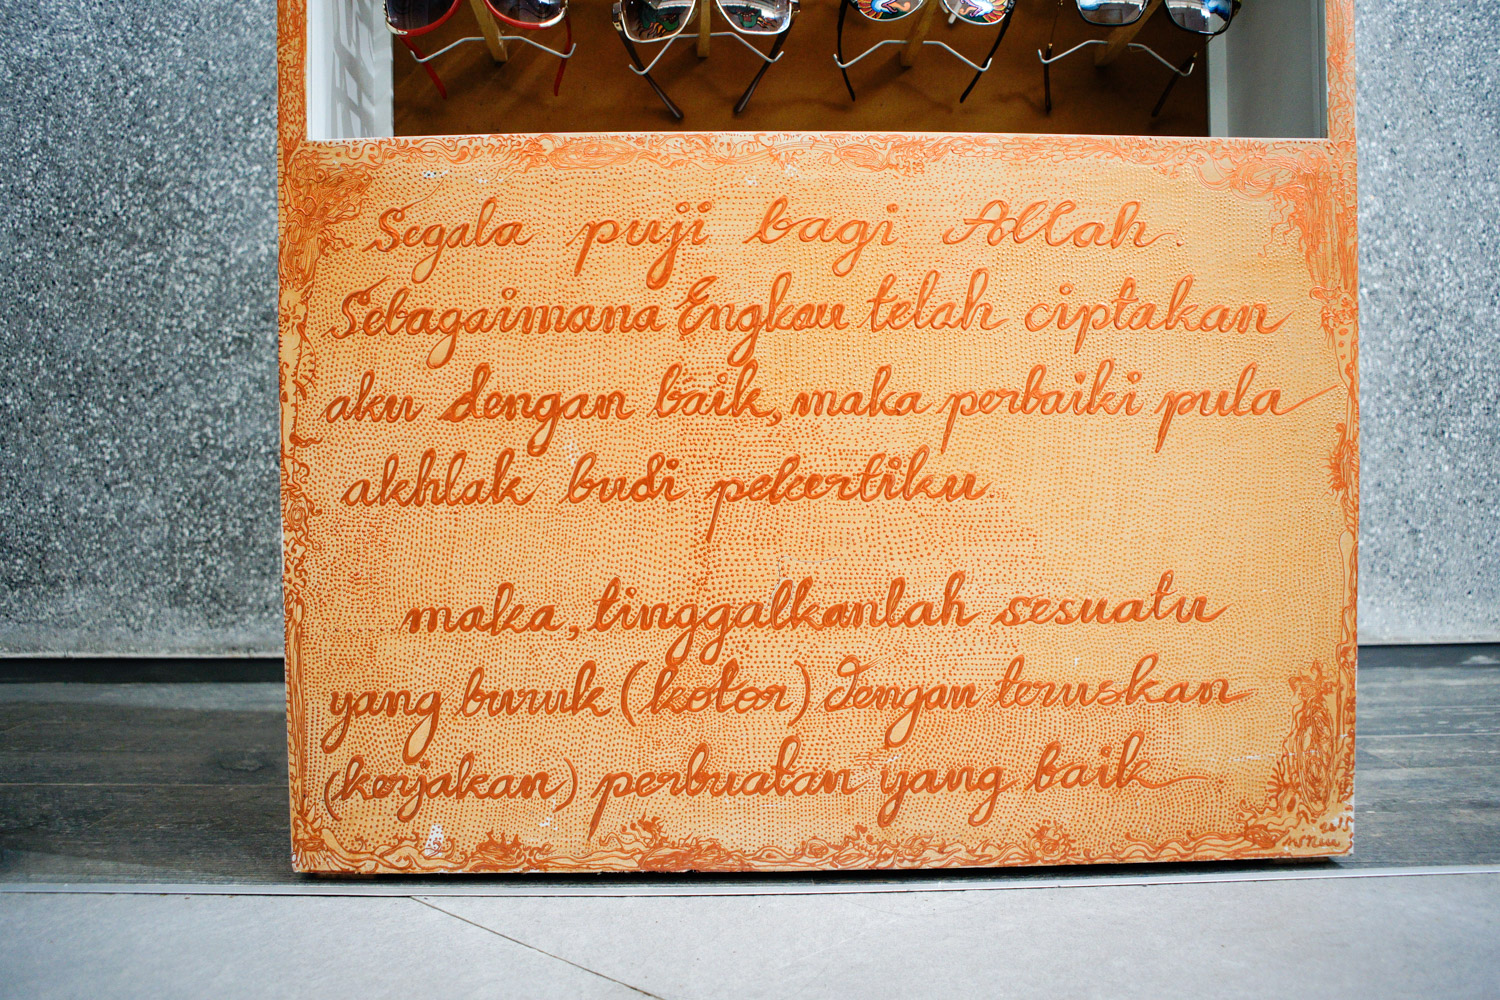 Segala puji bagi Allah.
Sebagaimana Engkau telah ciptakan
aku dengan baik, maka perbaiki pula
akhlak budi pekertiku.
maka, tinggalkanlah sesuatu
yang buruk (kotor) dengan teruskan
(kerjakan) perbuatan yang baik.